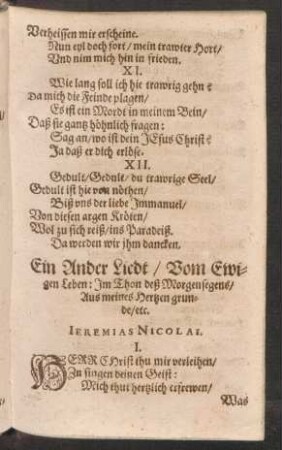 Verheissen mir erscheine.
Nun eyl doch fort / mein trawter Hort /
Vnd nim mich hin in frieden.
XI.
Wie lang soll ich hie trawrig gehn?
Da mich die Feinde plagen /
Es ist ein Mordt in meinem Bein /
Daß sie gantz höhnlich fragen:
Sag an / wo ist dein JEsus Christ?
Ja daß er dich erlöse.
XII.
Gedult / Gedult / du trawrige Seel /
Gedult ist hie von nöthen /
Biß vns der liebe Immanuel /
Von diesen argen Kröten /
Wol zu sich reiß / ins Paradeiß.
Da werden wir jhm dancken.
Ein Ander Liedt / Vom Ewi-
gen Leben: Im Thon deß Morgensegens /
Aus meines Hertzen grun-
de / etc.
IEREMIAS NICOLAI.
I.
HERR CHrist thu mir verleihen /
Zu singen deinen Geist:
Mich thut hertzlich erfrewen /
Was